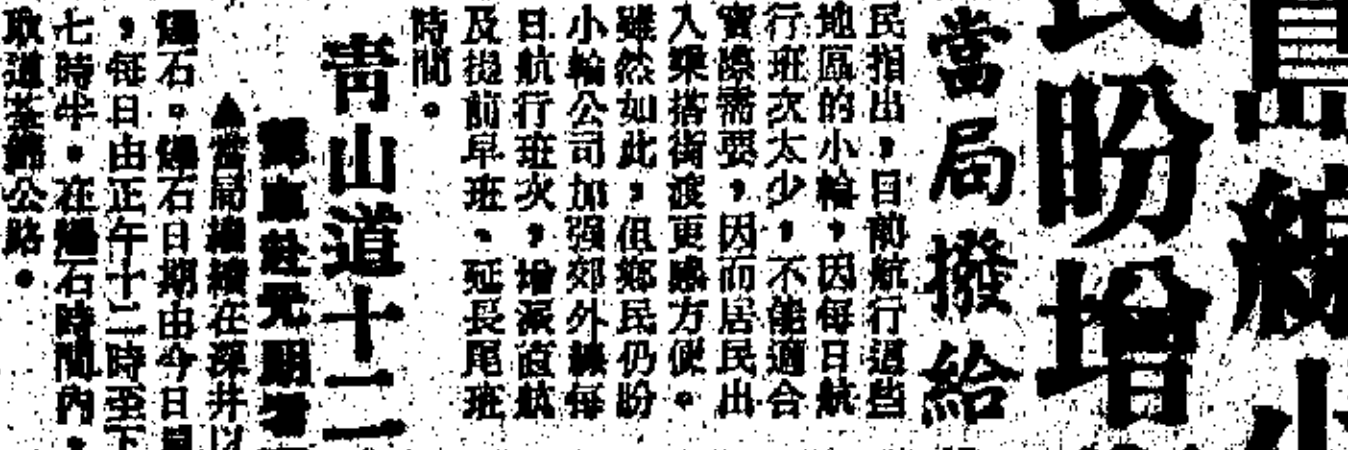 民盼增
當局撥給
民指出，目前航行這些
地區的小輪，因每日航
行班次太少，不能適合
實際需要，因而居民出
入乘搭街渡更感方便。
雖然如此，但鄉民仍盼
小輪公司加强郊外線每
日航行班次，增派直航
及提前早班、延長尾班
時間。
青山道十二
當局繼續在深井以
爆石。爆石日期由今日
，每日由正午十二時至下
七時半。在爆石時間內，
取道荃錦公路。